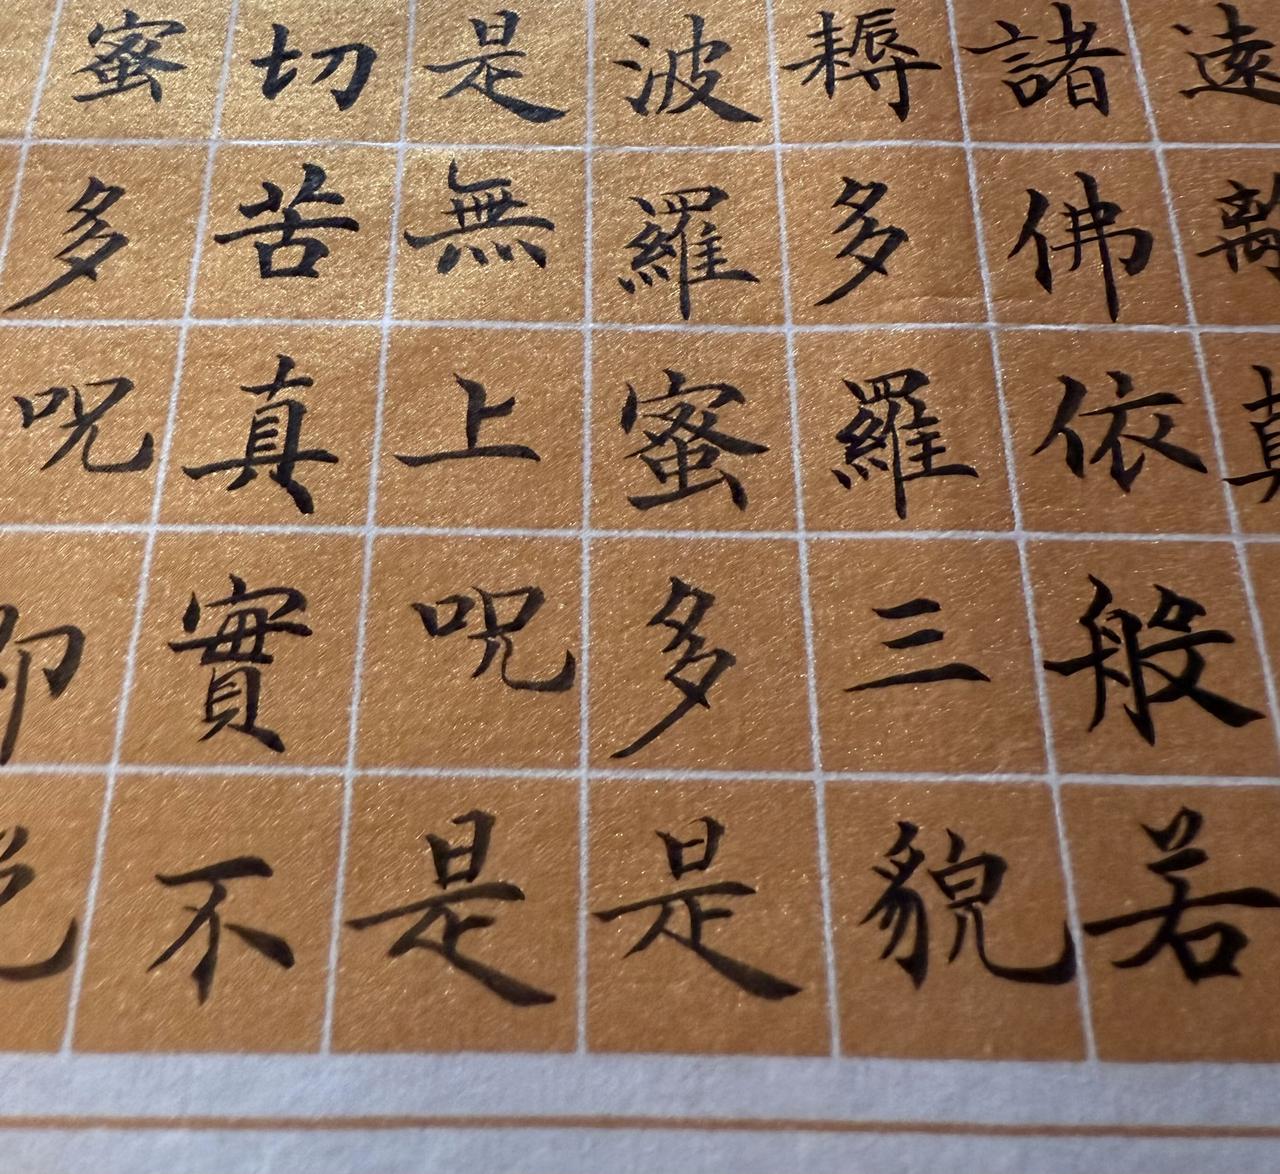 遠離顛
諸佛依般若
耨多羅三貌
波羅蜜多是
是無上呪是
切苦真實不
蜜多呪即